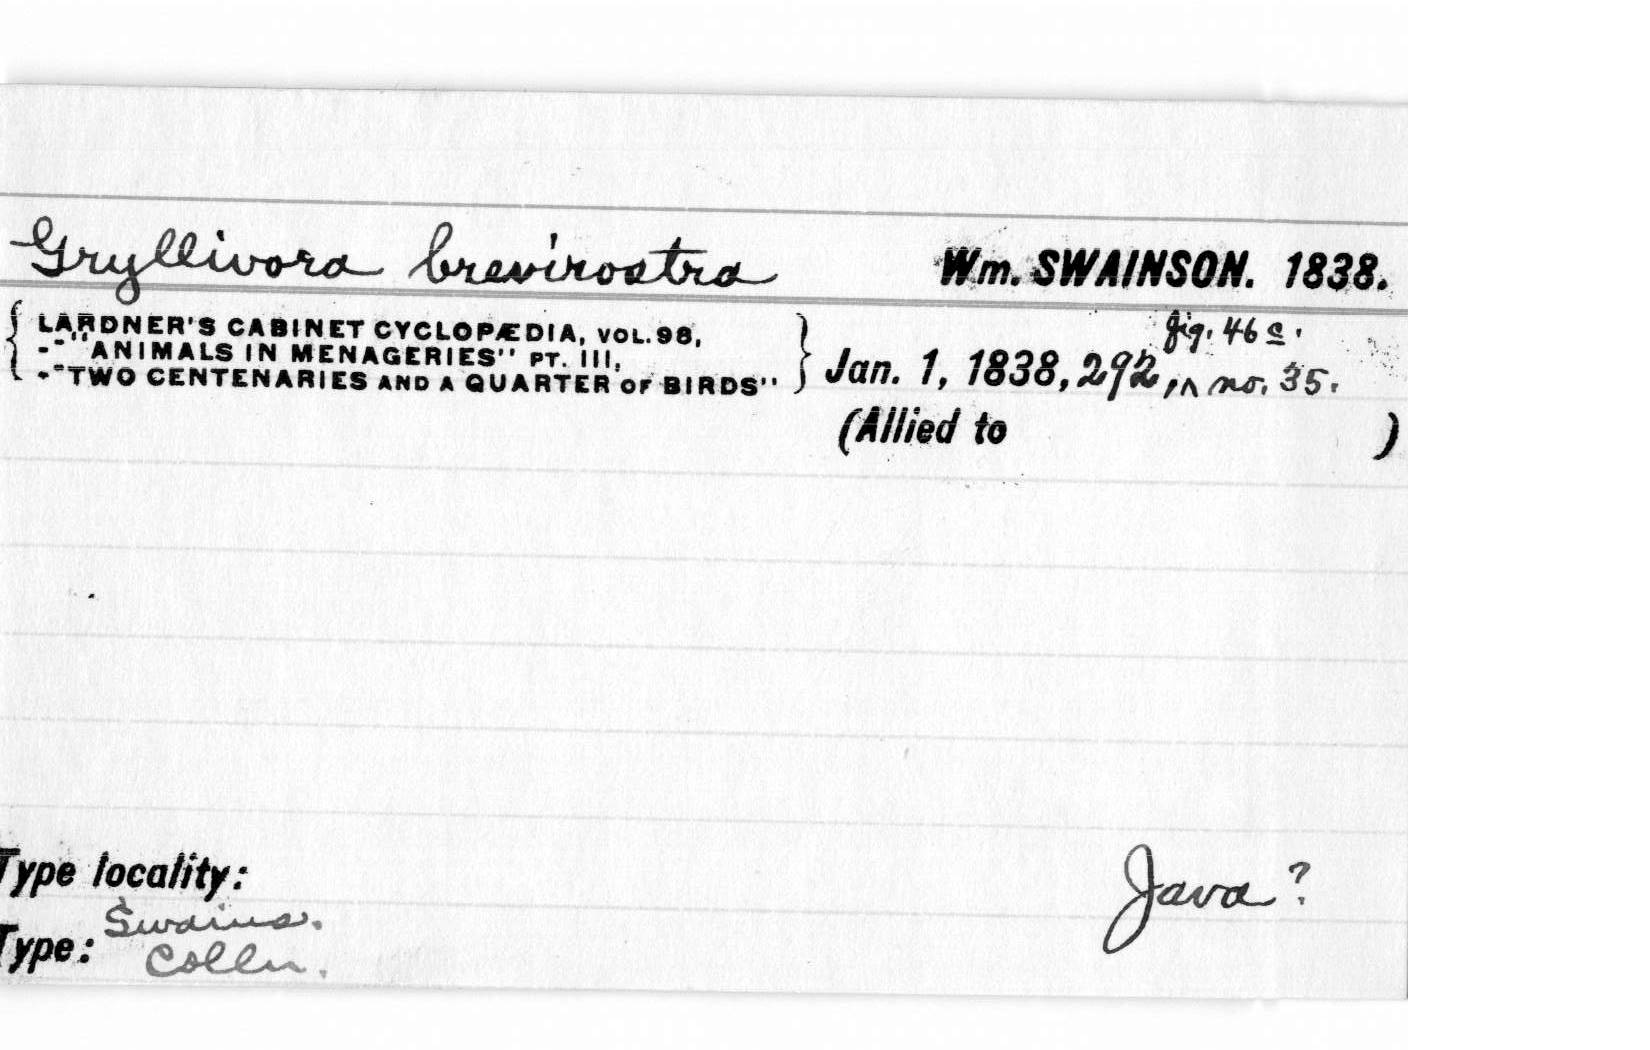 Gryllivora brevirostra Wm. SWAINSON. 1838.
LARDNER'S CABINET CYCLOPÆDIA, VOL. 98,
-"ANIMALS IN MENAGERIES" PT. III,
-"TWO CENTENARIES AND A QUARTER OF BIRDS"
Jan. 1, 1838, 292, no. 35.
fig. 46 c.
(Allied to )
Type locality: Java?
Type: Swains.
Colln.